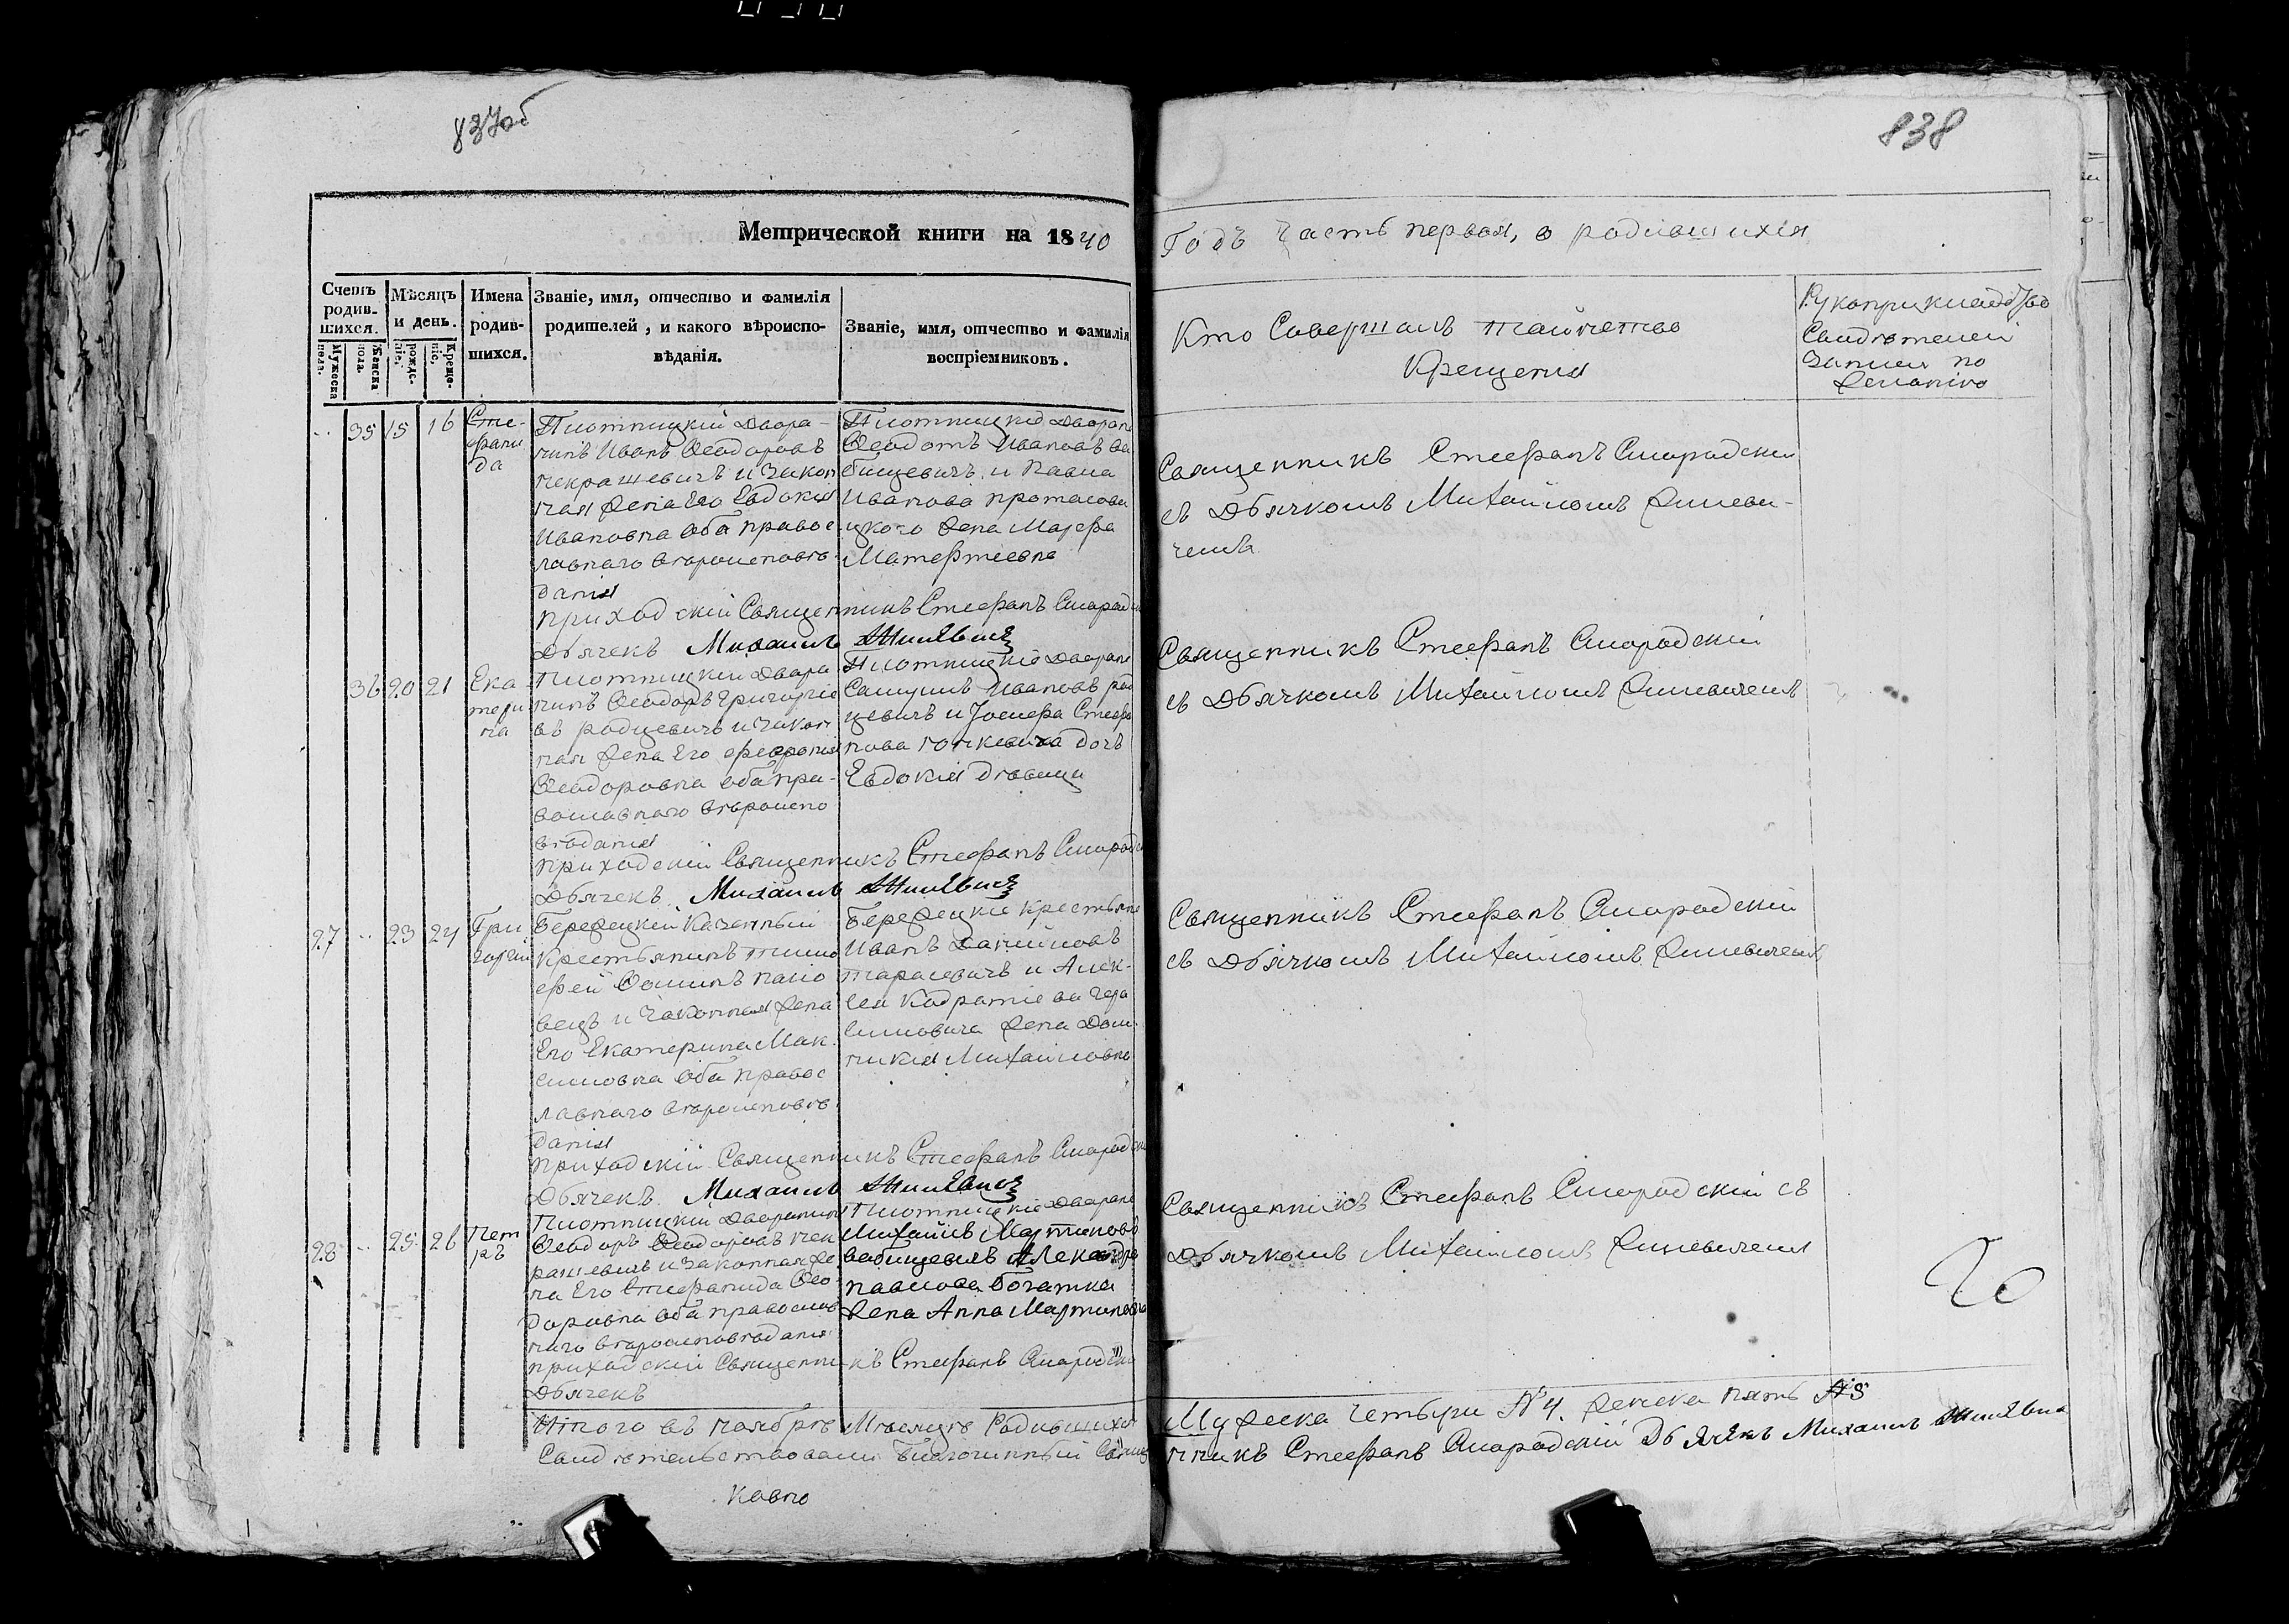 837об
838
Метрической книги на 1840
Годъ Часть первая, о родившихся
Счетъ родив-шихся.
Мужеска пола.
Женска пола.
Мѣсяцъ и день.
рожде-нія.
Креще-нія.
Имена родив-шихся.
Званіе, имя, отчество и фамилія
родителей, и какого вѣроиспо-
вѣданія.
Званіе, имя, отчество и фамилія
воспріемниковъ.
Кто Совершалъ таинство
Крещенія
Рукоприкладство
Свидѣтелей
Записи по
желанію
35 15 16
Сте-
фани
да
Плотницкій Дворя-
нинъ Иванъ Ѳеодоровъ
некрашевичъ и закон
ная жена Его Евдокия
Ивановна оба правос
лавнаго вѣроисповѣ-
данія
Плотницкіе Дворяне
Ѳеодотъ Ивановъ ва
бищевичъ и Павла
Иванова протасови
цкого жена
Матфеевна
Священникъ Стефанъ Смородскій
съ Дьячкомъ Михаиломъ Жилеви-
чемъ
приходскій Священникъ Стефанъ Смородскій
Дьячекъ Михаилъ Жилевичъ
36 20 21
Ека
тери
на
Плотницкій Дворя
нинъ Ѳеодоръ Григоріе
въ родцевичъ и закон
ная жена Его феврония
Ѳеодоровна оба пра-
вославнаго вѣроиспо
вѣданія
Плотницкіе Дворяне
Самуилъ Ивановъ род
цевичъ и Іосифа Стефа
нова дочь
Евдокия дѣвица
Священникъ Стефанъ Смородскій
съ Дьячкомъ Михаиломъ Жилевичемъ
приходскій Священникъ Стефанъ Смородскій
Дьячекъ Михаилъ Жилевичъ
27 23 24
Гри
горій
Бережецкій Казенный
Крестьянинъ тимо
фей Ѳоминъ
и законная жена
Его Екатерина Мак
симовна оба правос
лавнаго вѣроисповѣ
данія
Бережецкіе крестьяне
Иванъ Даниловъ
тарасевичъ и Алек-
сея Кодратіева Гера
симовича жена Дом
никия Михаиловна
Священникъ Стефанъ Смородскій
съ Дьячкомъ Михаиломъ Жилевичемъ
приходскій Священникъ Стефанъ Смородскій
Дьячекъ Михаилъ Жилевичъ
28 25 26
Пет
ръ
Плотницкій Дворянинъ
Ѳеодоръ Ѳеодоровъ нек
рашевичъ и законная же
на Его Стефанида Ѳео
доровна оба православ
наго вѣроисповѣданія
Плотницкіе Дворяне
Михаилъ Мартиновъ
вабищевичъ Александра
павлова Богатка
жена Анна Мартиновна
Священникъ Стефанъ Смородскій съ
Дьячкомъ Михаиломъ Жилевичемъ
приходскій Священникъ Стефанъ Смородскій
Дьячекъ
Итого въ ноябрѣ Мѣсяцѣ Родившихся Мужеска четыри №4. женска пять №5
Свидѣтельствовали Благочинный Священникъ Стефанъ Смородскій Дьячекъ Михаилъ Жилевичъ